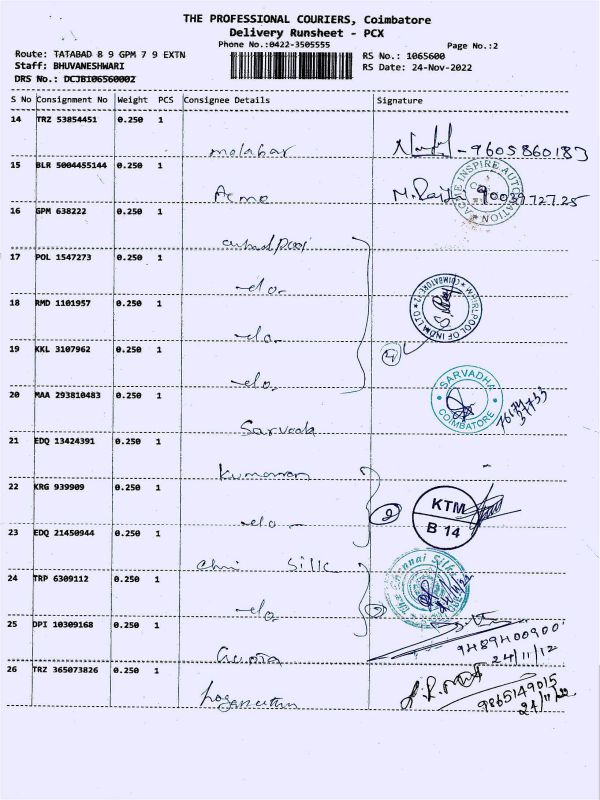 THE PROFESSIONAL COURIERS, Coimbatore
Delivery Runsheet - PCX
Phone No.:0422-3505555
Page No.:2
Route: TATABAD 8 9 GPM 7 9 EXTN
RS No.: 1065600
Staff: BHUVANESHWARI
RS Date: 24-Nov-2022
DRS No.: DCJB10656000Z
S No Consignment No Weight PCS Consignee Details Signature
14 TRZ 53854451 0.250 1
malabar - 9605860183
15 BLR 5004455144 0.250 1
Acme M. Raj 9003972725
ACME INSPIRE AUTOMATION
16 GPM 638222 0.250 1
17 POL 1547273 0.250 1
-do-
18 RMD 1101957 0.250 1
-do-
WHIRLPOOL OF INDIA LTD COIMBATORE-12
4
19 KKL 3107962 0.250 1
-do-
20 MAA 293810483 0.250 1
Sarvada
SARVADHA COIMBATORE
76174 37733
21 EDQ 13424391 0.250 1
Kumaran
22 KRG 939909 0.250 1
-do-
2
KTM
B 14
23 EDQ 21450944 0.250 1
Silk
The Chennai Silks
24 TRP 6309112 0.250 1
-do-
2
25 DPI 10309168 0.250 1
9489400900
24/11/12
26 TRZ 365073826 0.250 1
9865149015
24/11/22